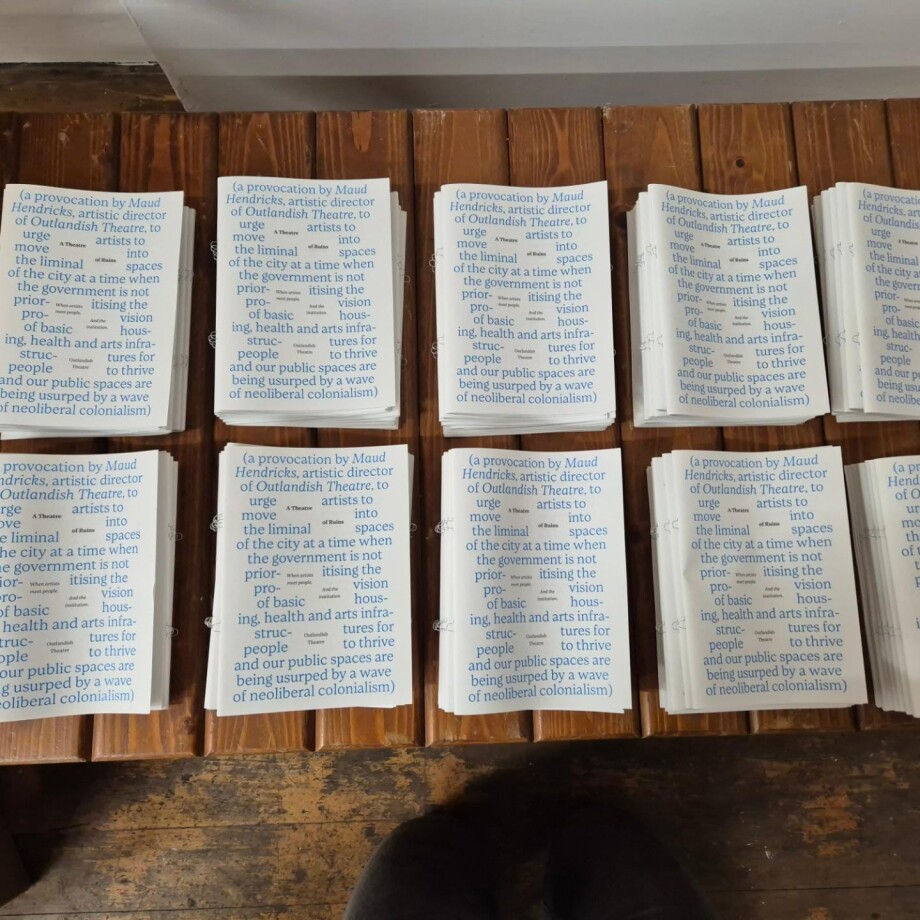 (a provocation by Maud
Hendricks, artistic director
of Outlandish Theatre, to
urge artists to
A Theatre
move into
of Ruins
the liminal spaces
of the city at a time when
the government is not
prior- itising the
When artists
meet people.
pro- vision
And the
institution.
of basic hous-
ing, health and arts infra-
struc- tures for
Outlandish
Theatre
people to thrive
and our public spaces are
being usurped by a wave
of neoliberal colonialism)